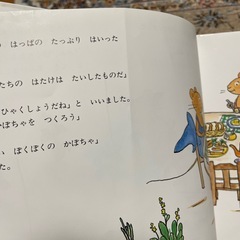 の はっぱの たっぷり はいった
たちの はたけは たいしたものだ」
ひゃくしょうだね」と いいました。
かぼちゃを つくろう」
い ぽくぽくの かぼちゃ
た。